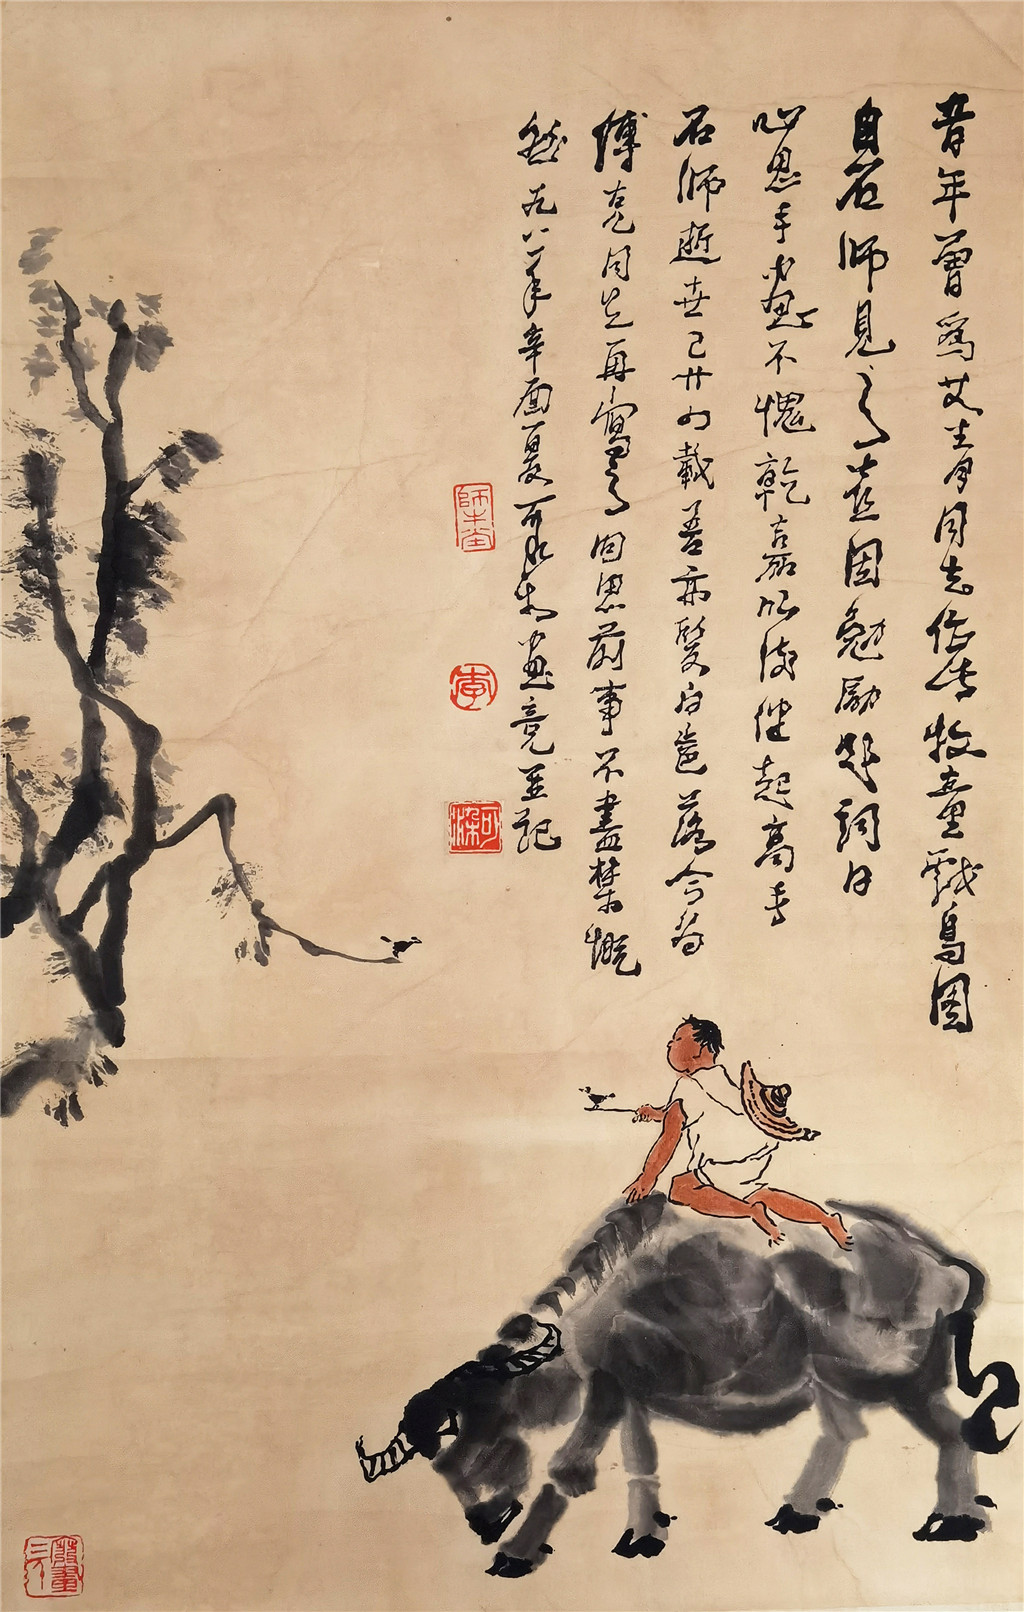 昔年曾為艾青同志作此牧童戲鳥圖
白石師見之喜因勉勵題詞曰
心思手作不愧乾嘉以後繼起高手
石師逝世已廿四載吾亦髮白齒落今為
傅克同志再寫之回思前事不盡禁慨
然一九八一年辛酉夏可染畫竟並記
師牛堂
李
可染